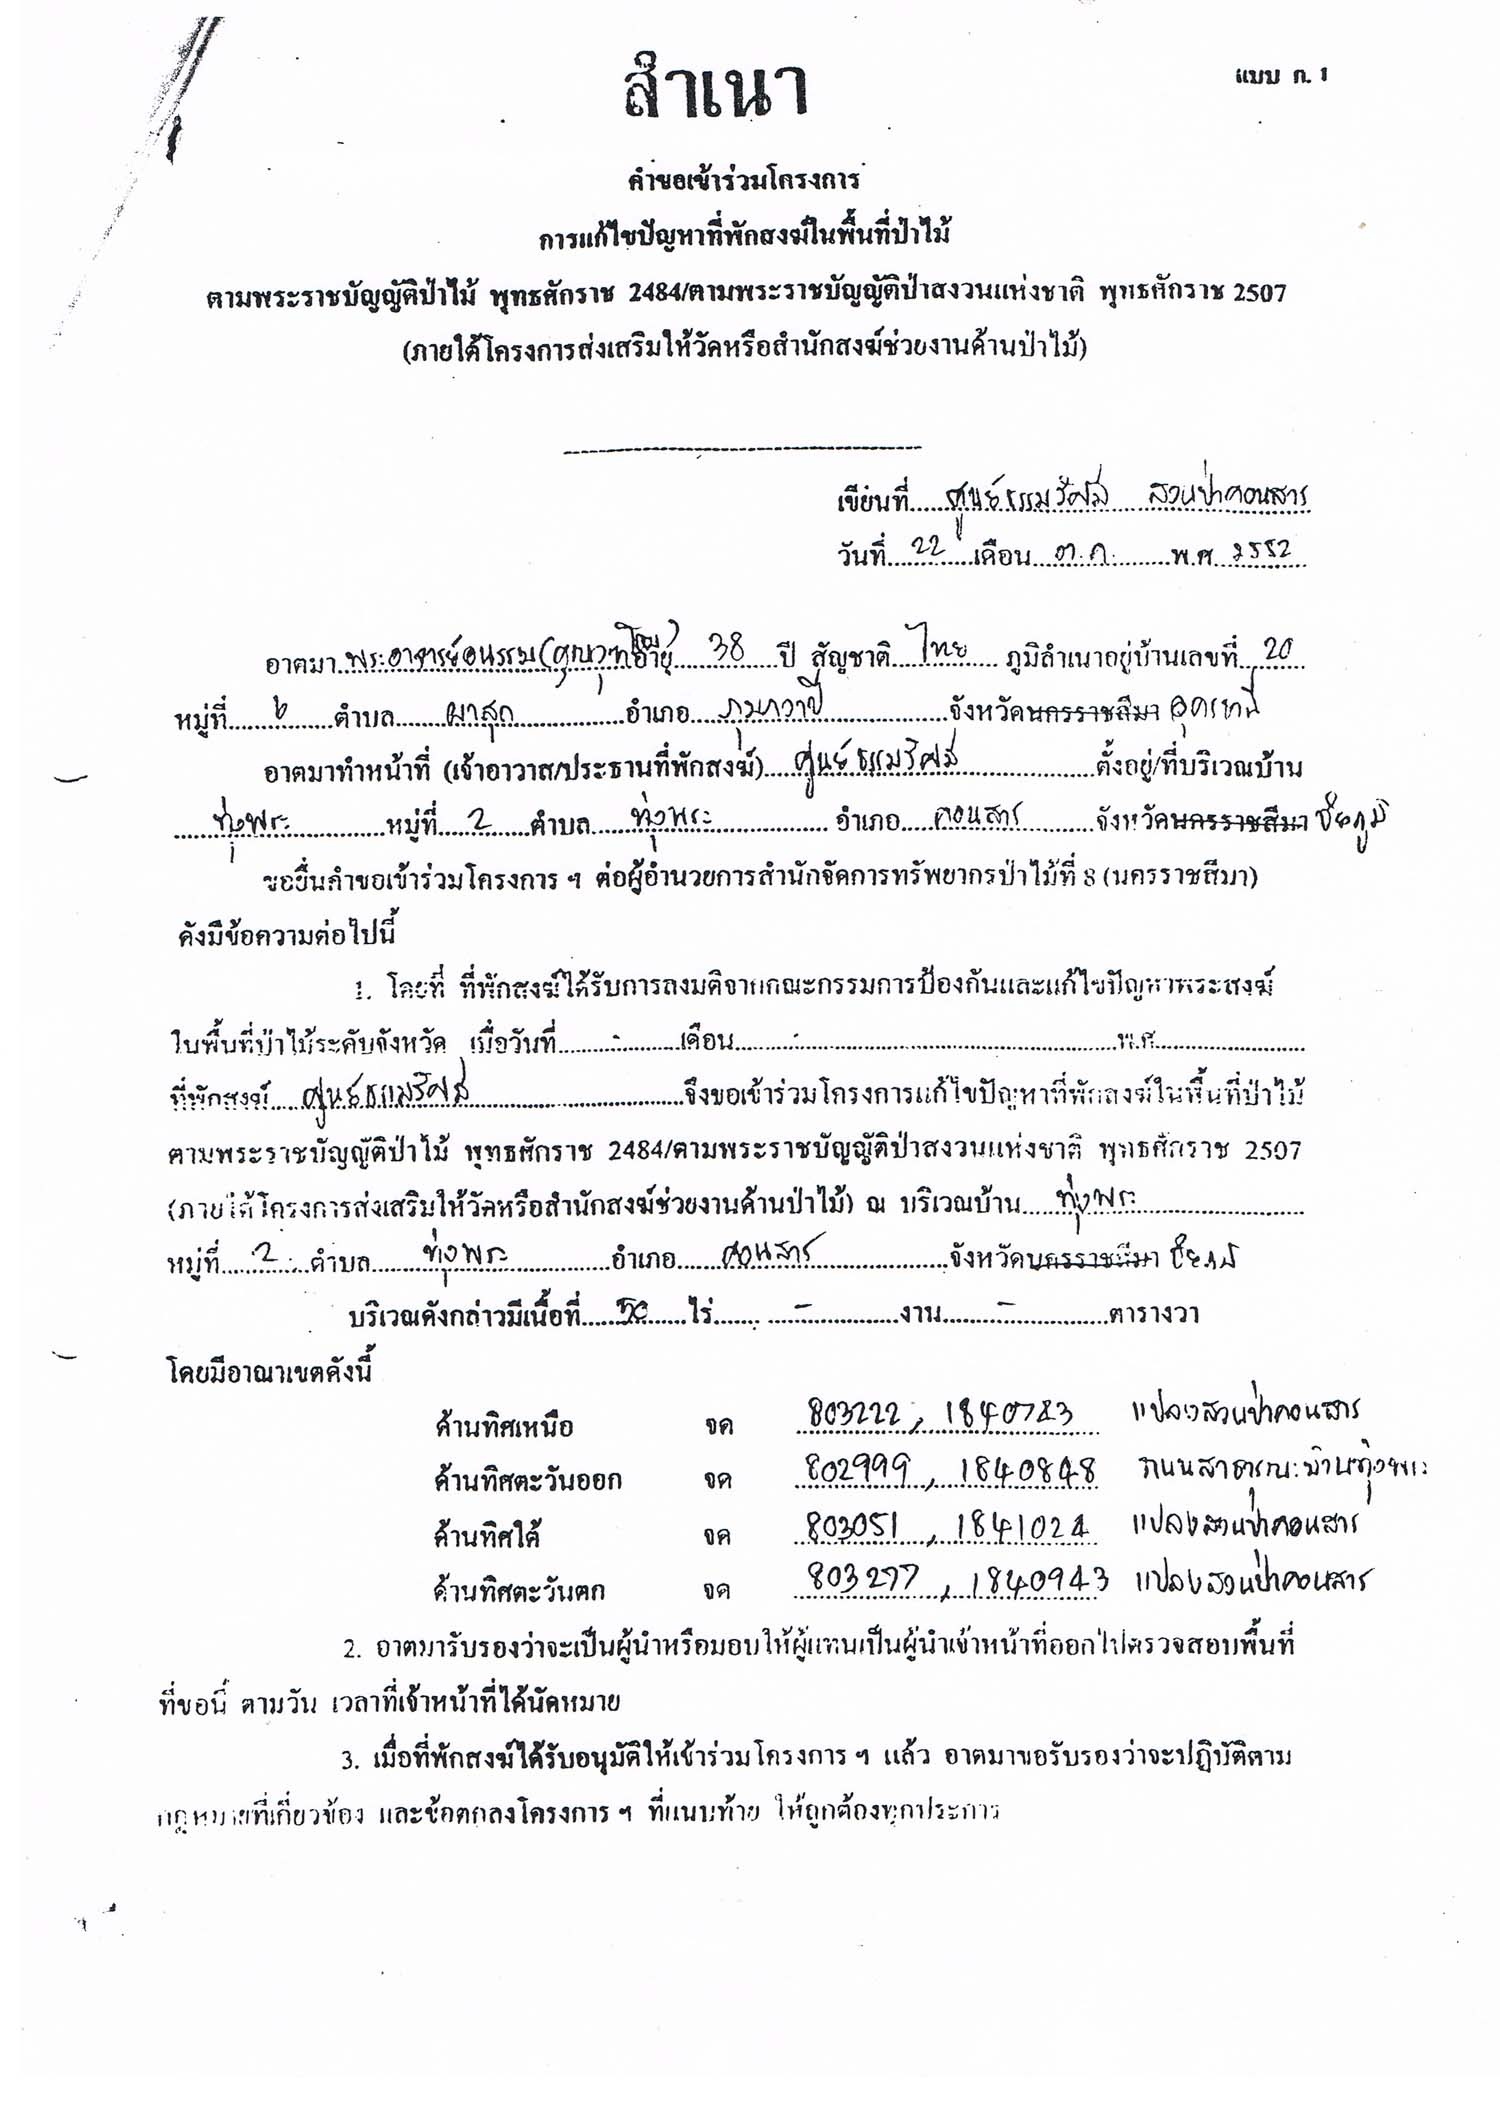 สำเนา
แบบ ก. 1
คำขอเข้าร่วมโครงการ
การแก้ไขปัญหาที่พักสงฆ์ในพื้นที่ป่าไม้
ตามพระราชบัญญัติป่าไม้ พุทธศักราช 2484/ตามพระราชบัญญัติป่าสงวนแห่งชาติ พุทธศักราช 2507
(ภายใต้โครงการส่งเสริมให้วัดหรือสำนักสงฆ์ช่วยงานด้านป่าไม้)
เขียนที่ ศูนย์ธรรมรัศมี สวนป่าคอนสาร
วันที่ 22 เดือน ต.ค. พ.ศ. 2552
อาตมา พระอาจารย์ อายุ 38 ปี สัญชาติ ไทย ภูมิลำเนาอยู่บ้านเลขที่ 20
หมู่ที่ ๖ ตำบล ผาสุก อำเภอ กุมภวาปี จังหวัดนครราชสีมา อุดรธานี
อาตมาทำหน้าที่ (เจ้าอาวาส/ประธานที่พักสงฆ์) ศูนย์ธรรมรัศมี ตั้งอยู่/ที่บริเวณบ้าน
ทุ่งพระ หมู่ที่ 2 ตำบล ทุ่งพระ อำเภอ คอนสาร จังหวัดนครราชสีมา ชัยภูมิ
ขอยื่นคำขอเข้าร่วมโครงการ ฯ ต่อผู้อำนวยการสำนักจัดการทรัพยากรป่าไม้ที่ 8 (นครราชสีมา)
ดังมีข้อความต่อไปนี้
1. โดยที่ ที่พักสงฆ์ได้รับการลงมติจากคณะกรรมการป้องกันและแก้ไขปัญหาพระสงฆ์
ในพื้นที่ป่าไม้ระดับจังหวัด เมื่อวันที่ - เดือน - พ.ศ.
ที่พักสงฆ์ ศูนย์ธรรมรัศมี จึงขอเข้าร่วมโครงการแก้ไขปัญหาที่พักสงฆ์ในพื้นที่ป่าไม้
ตามพระราชบัญญัติป่าไม้ พุทธศักราช 2484/ตามพระราชบัญญัติป่าสงวนแห่งชาติ พุทธศักราช 2507
(ภายใต้โครงการส่งเสริมให้วัดหรือสำนักสงฆ์ช่วยงานด้านป่าไม้) ณ บริเวณบ้าน ทุ่งพระ
หมู่ที่ 2 ตำบล ทุ่งพระ อำเภอ คอนสาร จังหวัดนครราชสีมา ชัยภูมิ
บริเวณดังกล่าวมีเนื้อที่ 50 ไร่ - งาน - ตารางวา
โดยมีอาณาเขตดังนี้
ด้านทิศเหนือ จด 803222, 1840783 แปลงสวนป่าคอนสาร
ด้านทิศตะวันออก จด 802999, 1840848 ถนนสาธารณะบ้านทุ่งพระ
ด้านทิศใต้ จด 803051, 1841024 แปลงสวนป่าคอนสาร
ด้านทิศตะวันตก จด 803277, 1840943 แปลงสวนป่าคอนสาร
2. อาตมารับรองว่าจะเป็นผู้นำหรือมอบให้ผู้แทนเป็นผู้นำเจ้าหน้าที่ออกไปตรวจสอบพื้นที่
ที่ขอนี้ ตามวัน เวลาที่เจ้าหน้าที่ได้นัดหมาย
3. เมื่อที่พักสงฆ์ได้รับอนุมัติให้เข้าร่วมโครงการ ฯ แล้ว อาตมาขอรับรองว่าจะปฏิบัติตาม
กฎหมายที่เกี่ยวข้อง และข้อตกลงโครงการ ฯ ที่แนบท้าย ให้ถูกต้องทุกประการ